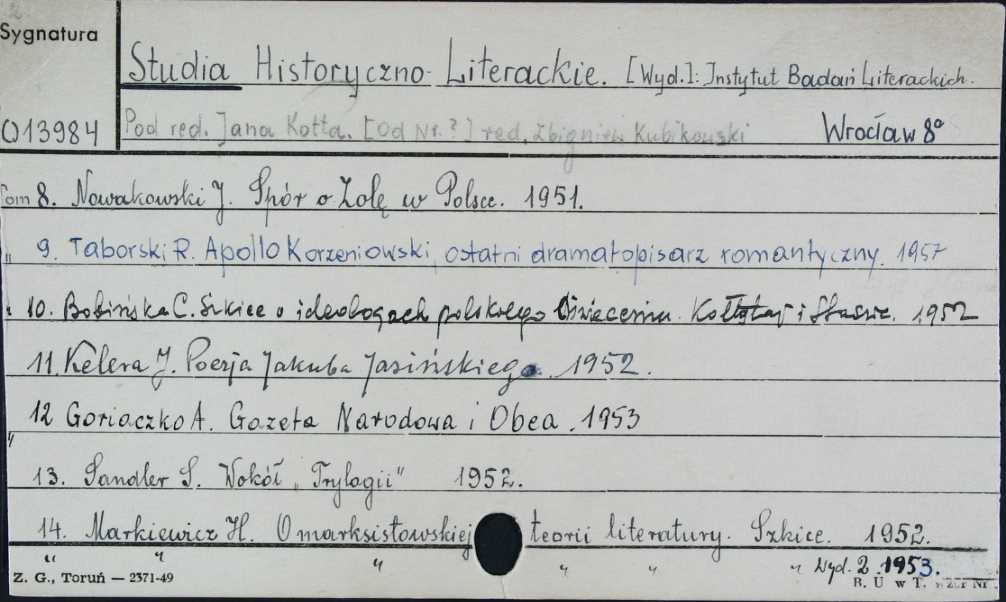 Sygnatura
Studia Historyczno-Literackie. [Wyd.]: Instytut Badań Literackich.
O13984 Pod red. Jana Kotta. [Od Nr. ?] red. Zbigniew Kubikowski Wrocław 8°
Tom 8. Nowakowski J. Spór o Zolę w Polsce. 1951.
" 9. Taborski R. Apollo Korzeniowski, ostatni dramatopisarz romantyczny. 1957
" 10. Bobińska C. Szkice o ideologach polskiego Oświecenia. Kołłątaj i Staszic. 1952
11. Kelera J. Poezja Jakuba Jasińskiego. 1952.
12 Goriaczko A. Gazeta Narodowa i Obca. 1953
"
13. Sandler S. Wokół „Trylogii" 1952.
14. Markiewicz H. O marksistowskiej teorii literatury. Szkice. 1952.
" " " " " " Wyd. 2. 1953.
Z. G., Toruń — 2371-49 R. U w T. wzór Nr